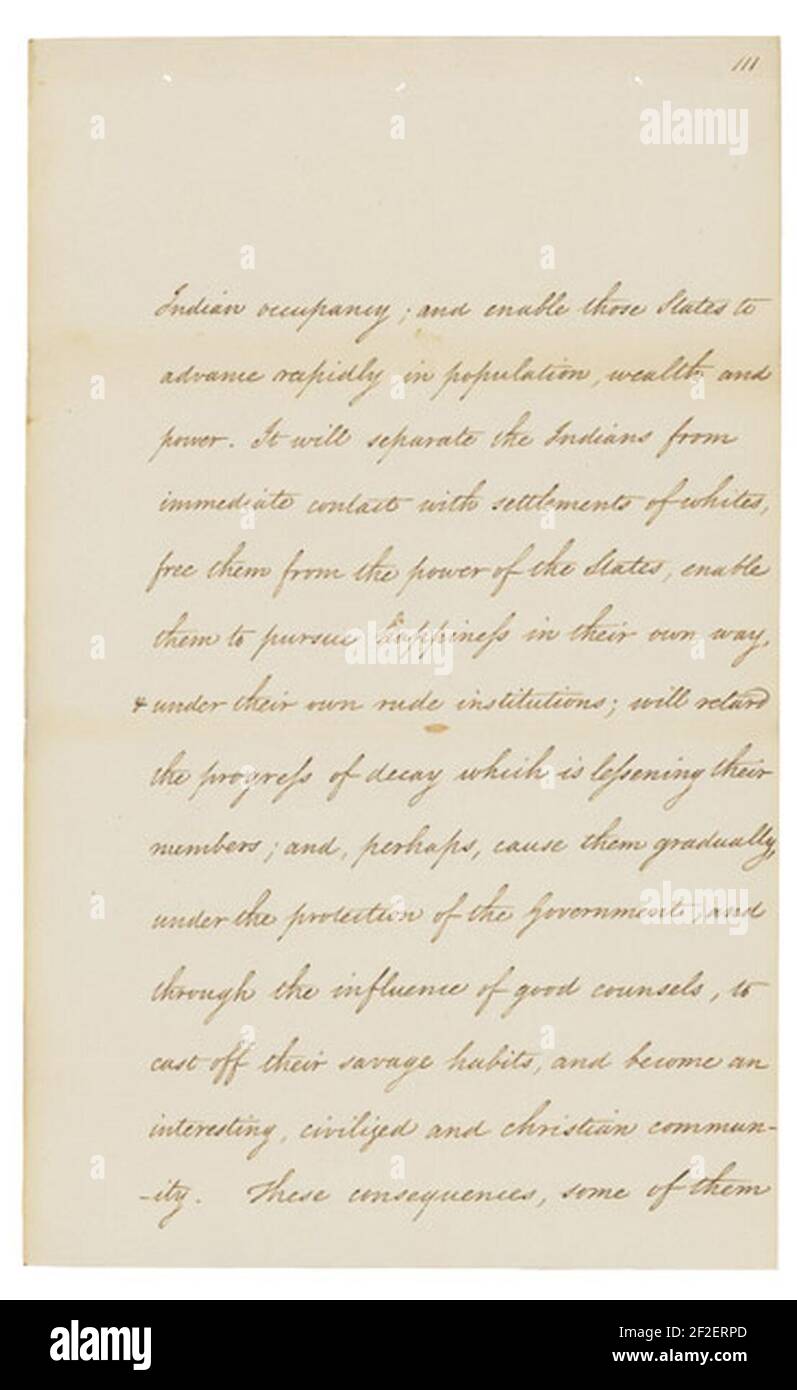 111
Indian occupancy; and enable those States to
advance rapidly in population, wealth, and
power. It will separate the Indians from
immediate contact with settlements of whites,
free them from the power of the States, enable
them to pursue happiness in their own way,
& under their own rude institutions; will retard
the progress of decay which is lessening their
numbers; and, perhaps, cause them gradually,
under the protection of the Government, and
through the influence of good counsels, to
cast off their savage habits, and become an
interesting, civilized and christian commun-
-ity. These consequences, some of them
a a alamy
a a
a a a
a alamy a
a a
a a alamy
a a
a a a
alamy
Image ID: 2F2ERPD
www.alamy.com